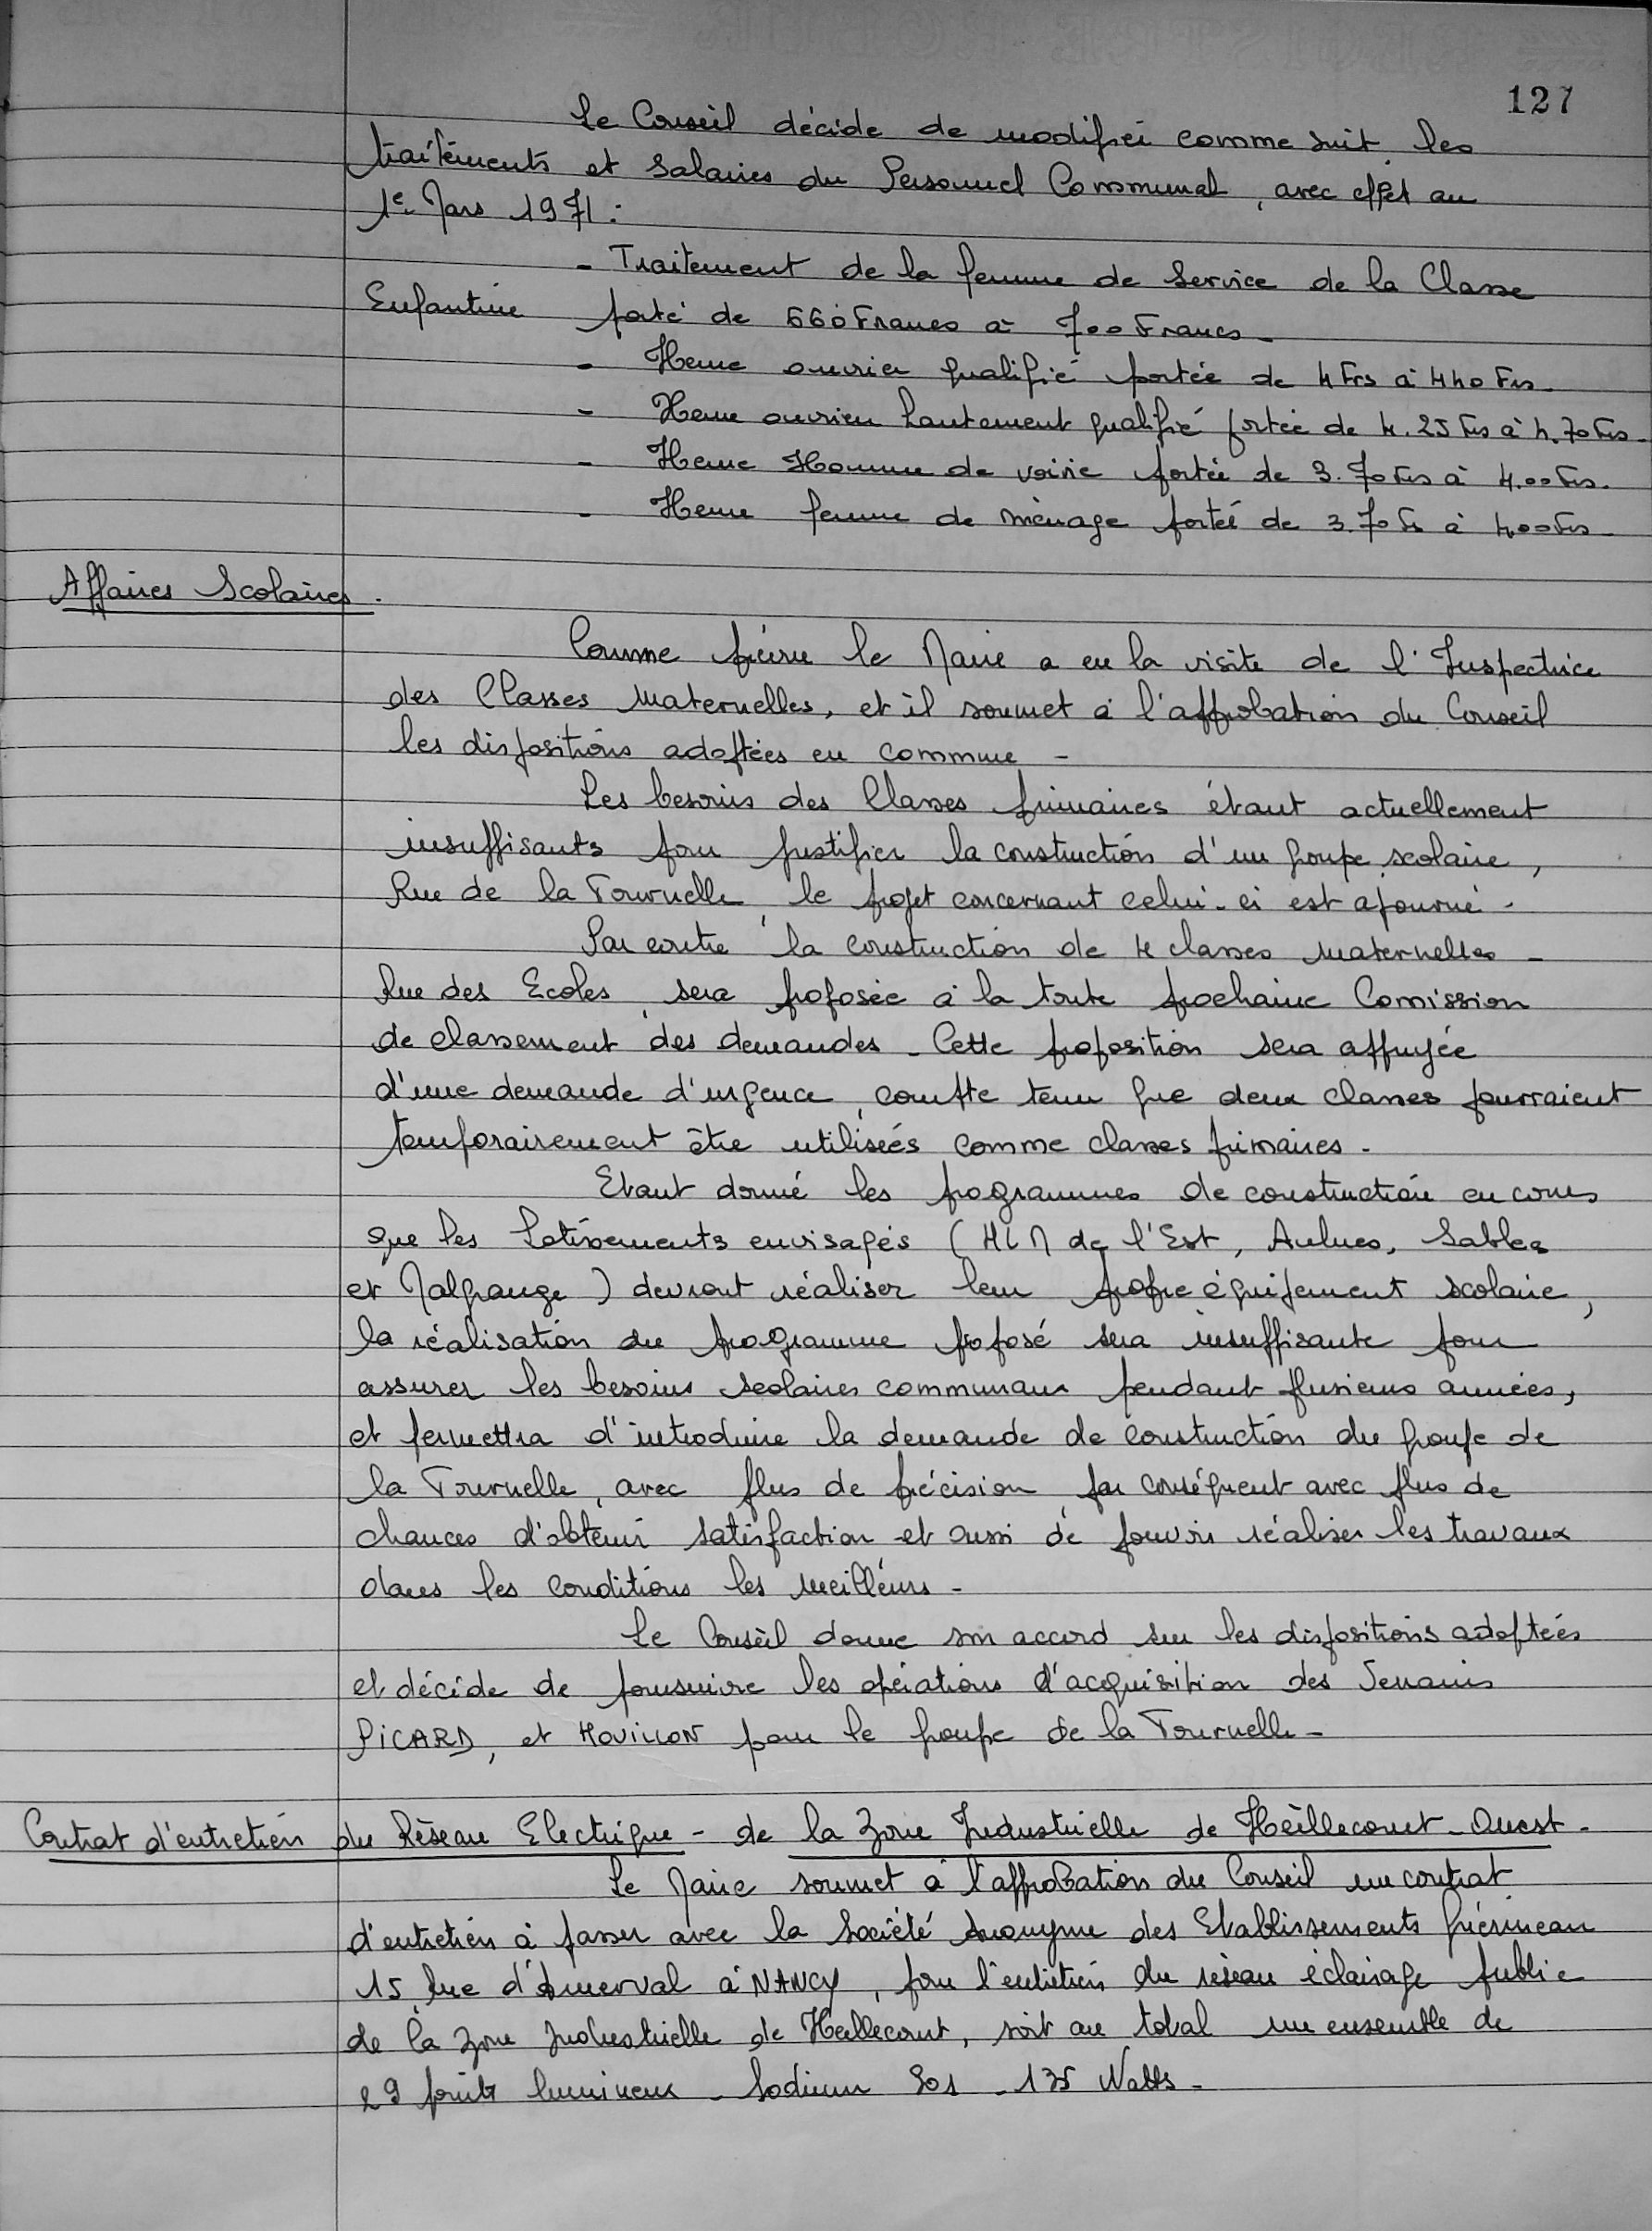 127
Le Conseil décide de modifier comme suit, les
traitements et salaires du Personnel Communal, avec effet au
1er Mars 1971 :
- Traitement de la femme de service de la Classe
Enfantine porté de 660 Francs à 700 Francs -
- Heure ouvrier qualifié portée de 4 Frs à 440 Frs -
- Heure ouvrier hautement qualifié portée de 4.25 Frs à 4.70 Frs -
- Heure Homme de voirie portée de 3.70 Frs à 4.00 Frs.
- Heure femme de ménage portée de 3.70 Fr à 4.00 Frs -
Affaires Scolaires.
Comme prévu le Maire a eu la visite de l'Inspectrice
des Classes Maternelles, et il soumet à l'approbation du Conseil
les dispositions adoptées en commun -
Les besoins des Classes primaires étant actuellement
insuffisants pour justifier la construction d'un groupe scolaire,
Rue de la Tournelle, le projet concernant celui-ci est ajourné -
Par contre, la construction de 4 classes maternelles -
Rue des Ecoles, sera proposée à la toute prochaine Comission
de classement des demandes - Cette proposition sera appuyée
d'une demande d'urgence, compte tenu que deux classes pourraient
temporairement être utilisées comme classes primaires -
Etant donné les programmes de construction en cours
que les lotissements envisagés (HLM de l'Est, Aulnes, Sables
et Malgrange) devront réaliser leur propre équipement scolaire,
la réalisation du programme proposé sera insuffisante pour
assurer les besoins scolaires communaux pendant plusieurs années,
et permettra d'introduire la demande de construction du groupe de
la Tournelle, avec plus de précision, par conséquent avec plus de
chances d'obtenir satisfaction et aussi de pouvoir réaliser les travaux
dans les conditions les meilleurs -
Le Conseil donne son accord sur les dispositions adoptées
et décide de poursuivre les opérations d'acquisition des Terrains
PICARD, et MOUILLON pour le groupe de la Tournelle -
Contrat d'entretien du Réseau Electrique - de la Zone Industrielle de Heillecourt-Ouest -
Le Maire soumet à l'approbation du Conseil un contrat
d'entretien à passer avec la Société Anonyme des Etablissements
15 Rue d'Amerval à NANCY, pour l'entretien du réseau éclairage public
de la Zone Industrielle de Heillecourt, soit au total un ensemble de
29 points lumineux - Sodium - 135 Watts -